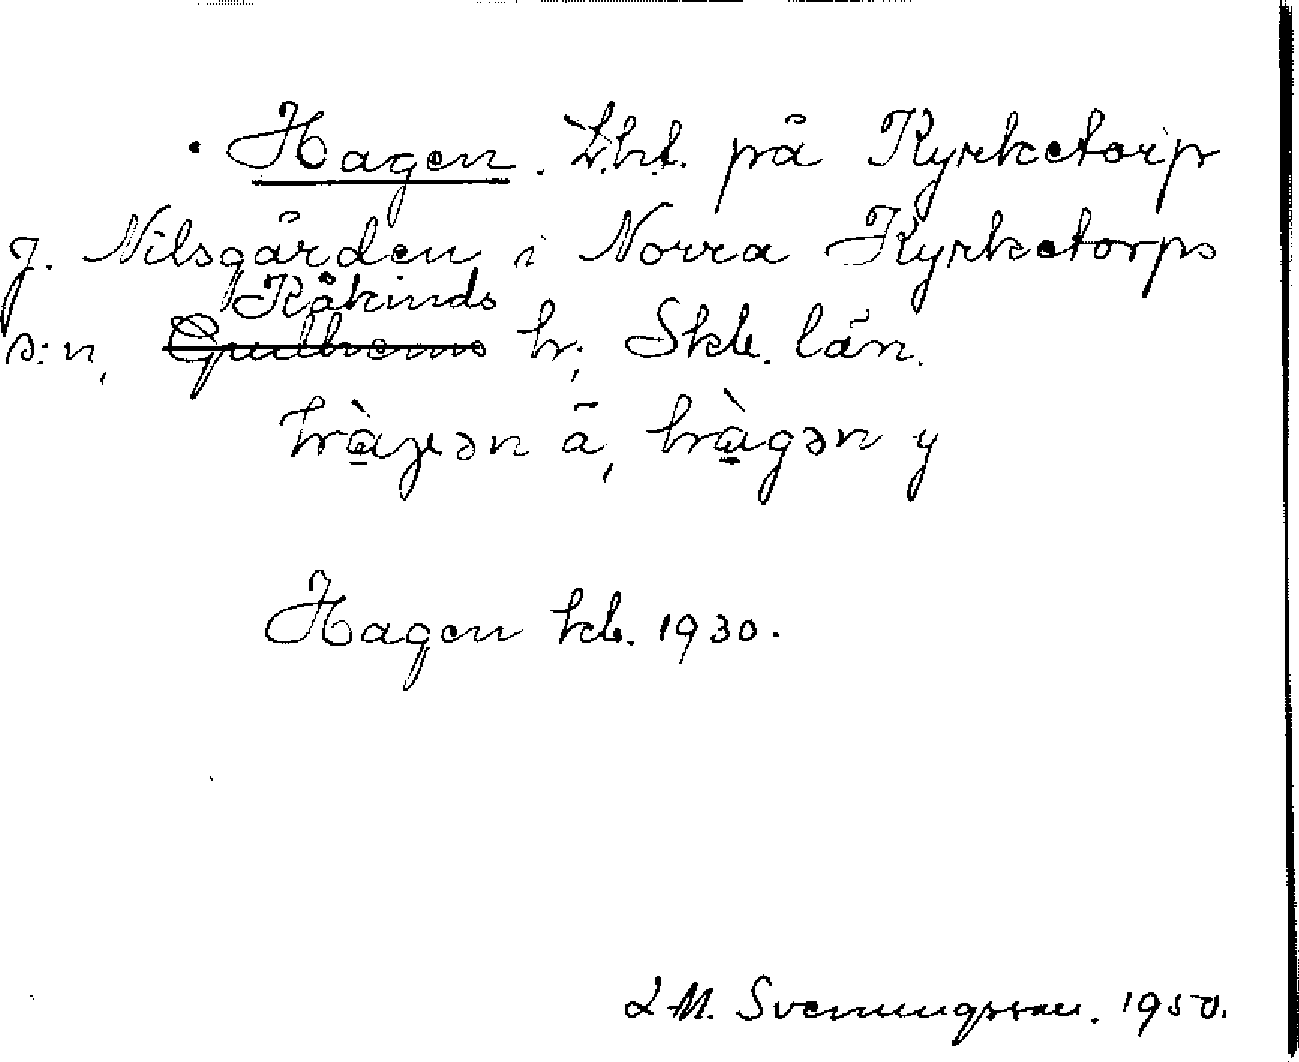 Hagen. Lht. på Kyrketorp
J. Nilsgården i Norra Kyrketorps
Kåkinds
s:n, Gudhems hr; Skbg. län.
hàɡən ä, hàgən y
Hagen kb. 1930.
L M. Svenungsson. 1950.